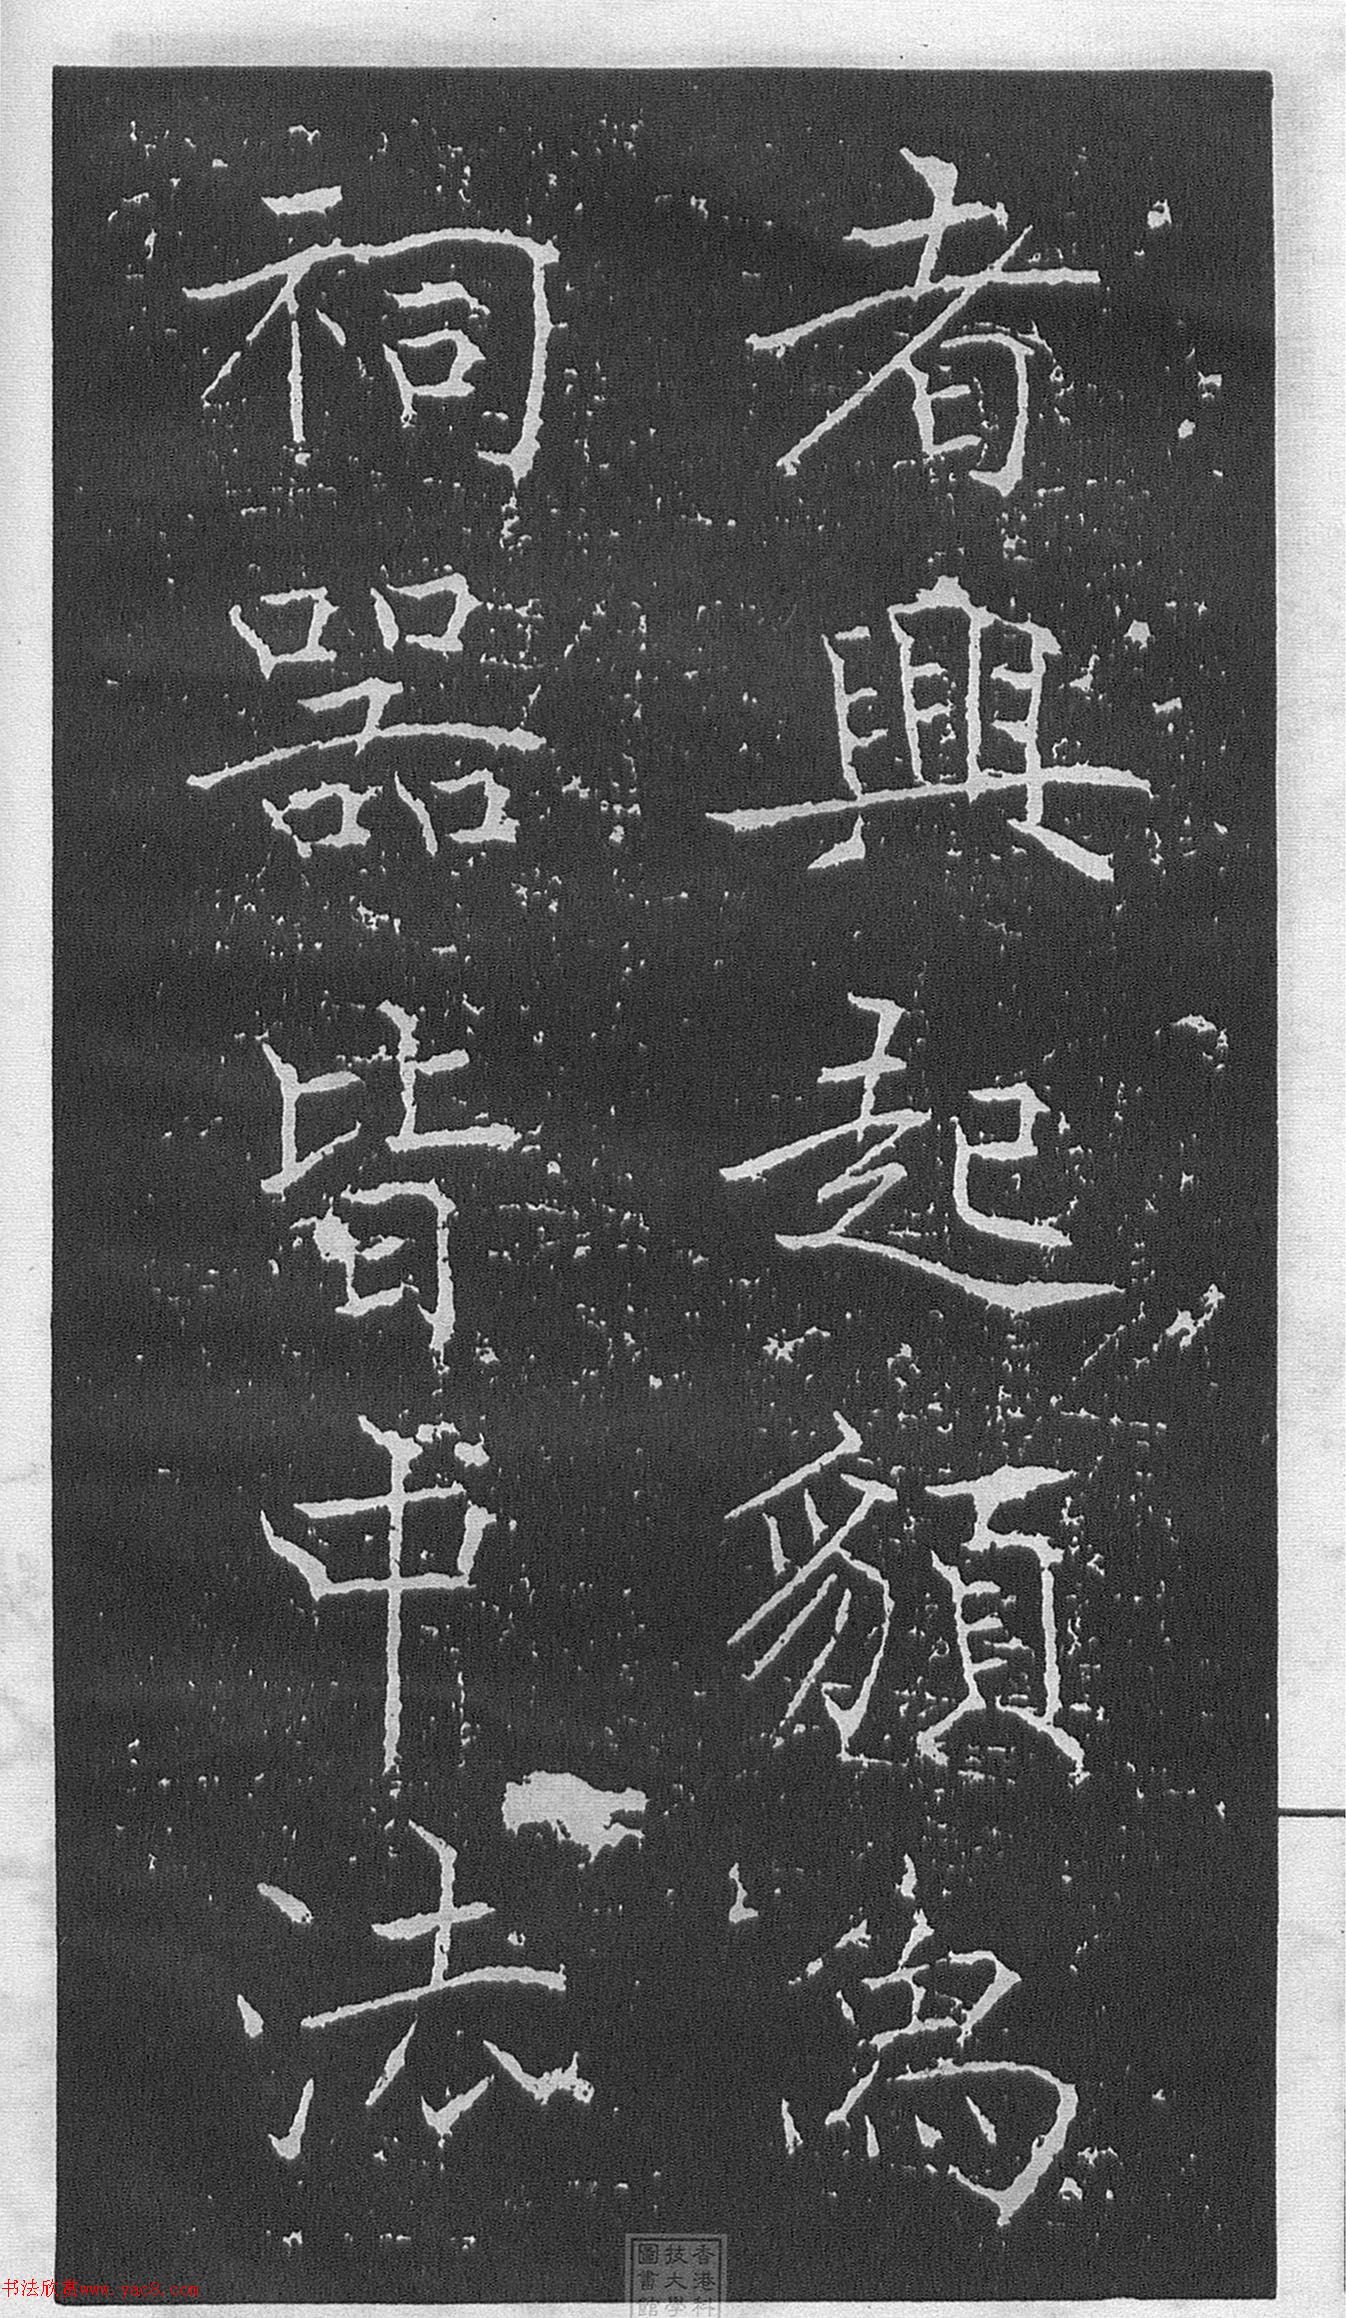 者興起額為
祠器皆中法
香港科
技大學
圖書館
书法欣赏www.yac8.com